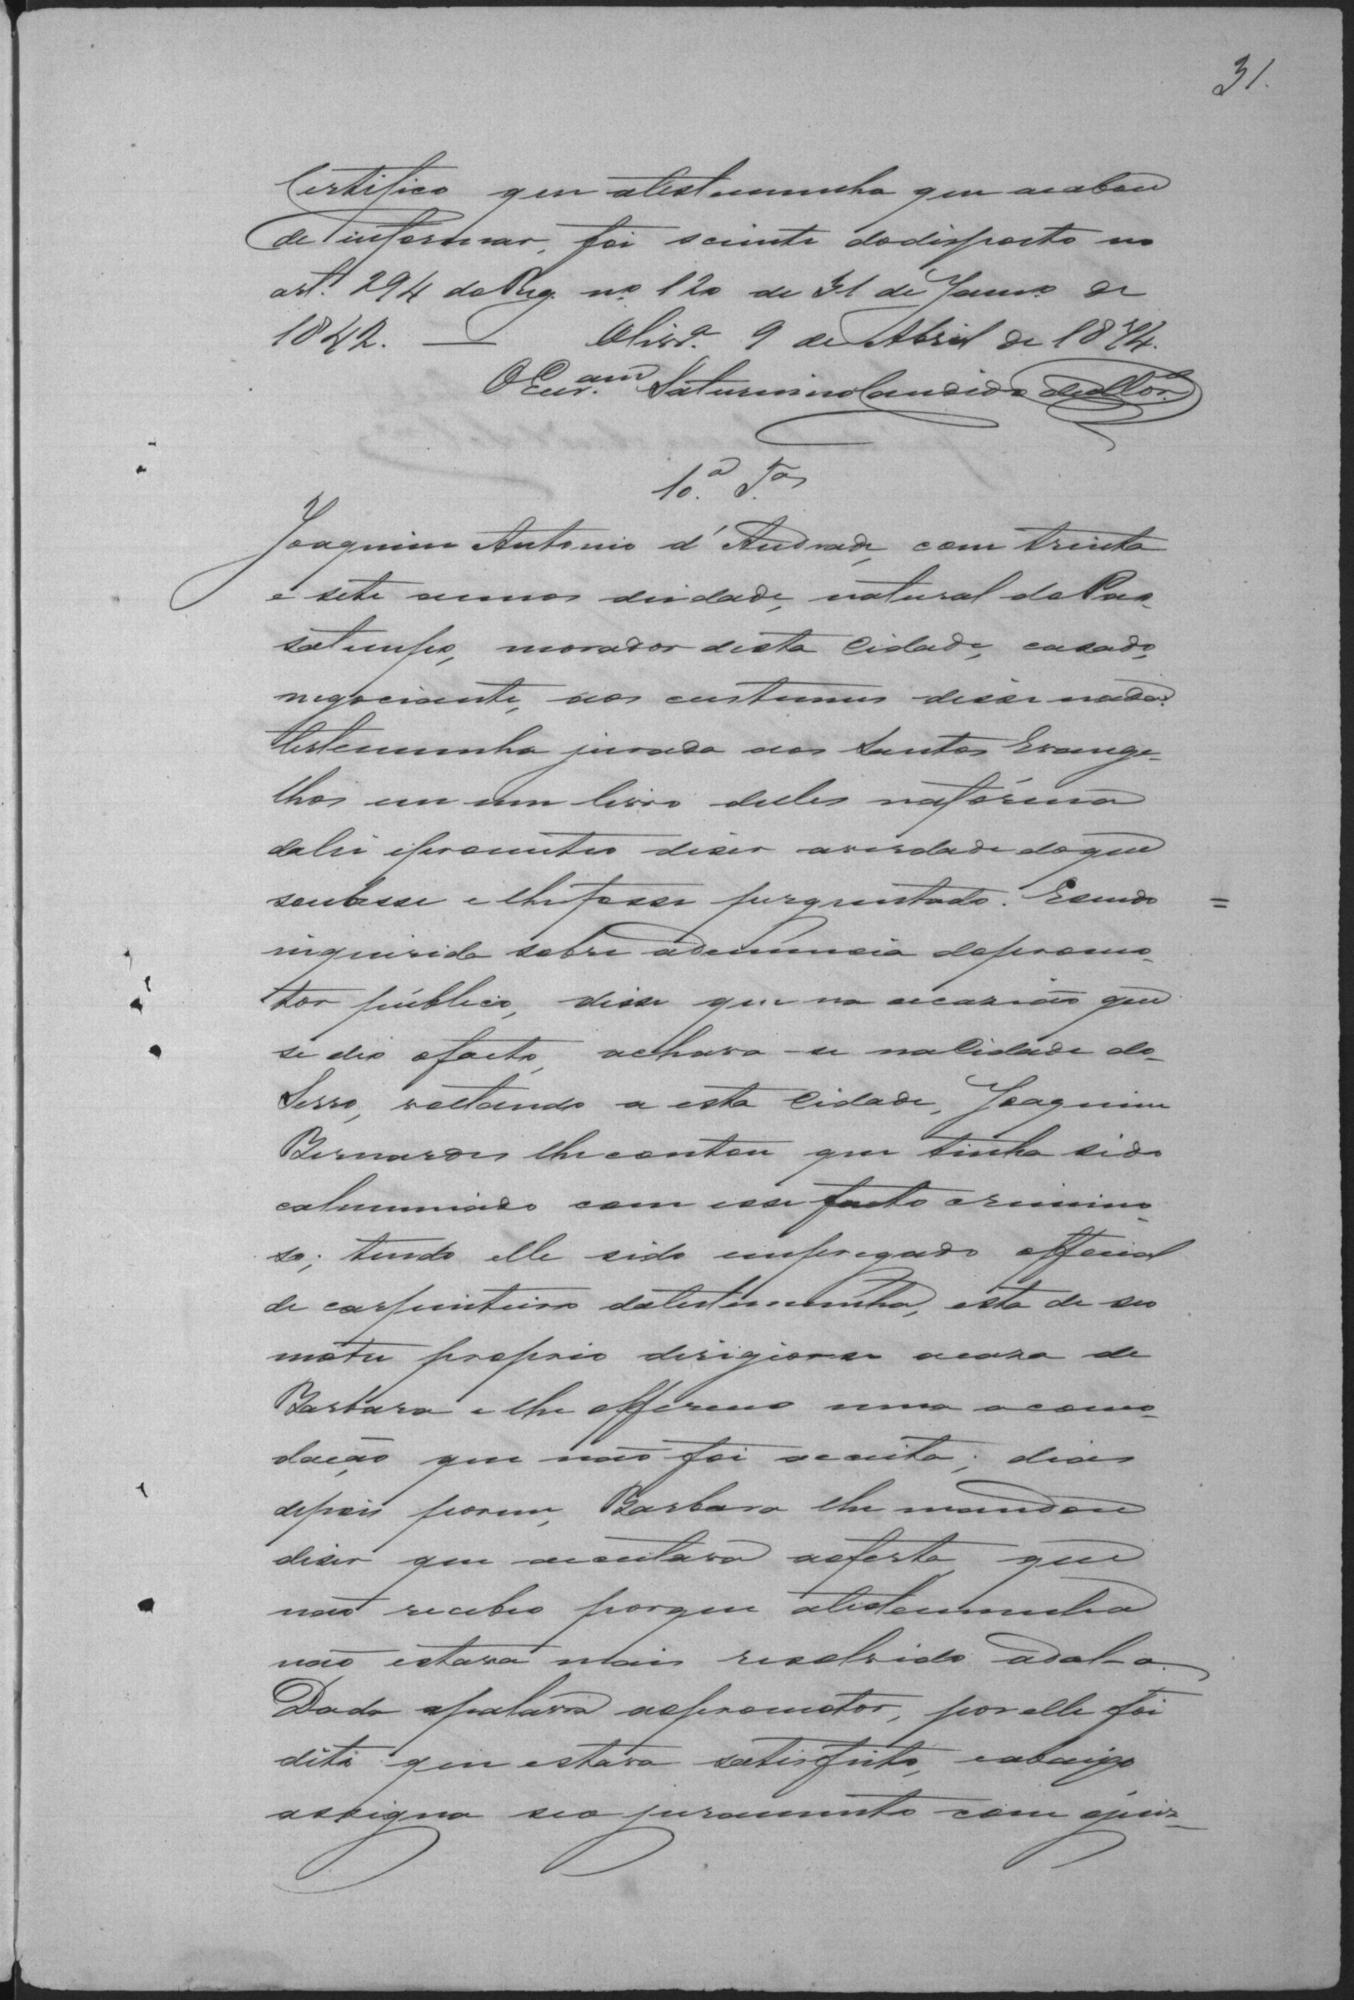 31.
Certifico que atestemunha que acabou
de informar, foi sciente dodisposto no
art.º 294 do Reg. nº 120 de 31 de Janrº de
1842. — Olivrª 9 de Abril de 1874.
O Escr.am Saturnino Candido
10.ª T.as
Joaquim Antonio d'Andrade, com trinta
e sete annos deidade, natural do Pas-
satempo, morador desta Cidade, casado,
negociante, aos custumes disse nada.
testemunha jurada aos Santos Evange-
lhos em um livro delles nafórma
dalei eprometteo diser averdade doque
soubesse e lhefosse perguntado. Esendo =
inquirido sobre adenuncia dopromo-
tor público, disse que na occasião que
se deo ofacto, achava-se naCidade do
Serro, voltando a esta Cidade, Joaquim
Bernardes lhecontou que tinha sido
calumniado com esse facto crimino-
so; tendo elle sido empregado official
de carpinteiro datestemunha, esta de seo
motu proprio dirigiose acasa de
Barbara e lhe offereceo uma acomo-
dação que não foi acceita; dias
depois porem, Barbara lhe mandou
diser que acceitava aoferta que
não recebeo porque atestemunha
não estava mais resolvido adal-a.
Dada apalavra aopromotor, por elle foi
dito que estava satisfeito, eabaixo
assigna seo juramento com ojuiz